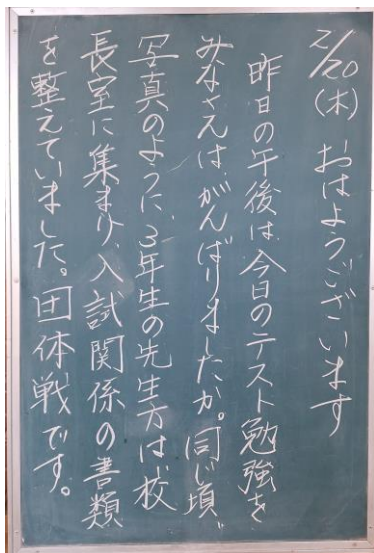 2/20(木) おはようございます
昨日の午後は今日のテスト勉強を
みなさんは、がんばりましたか。同じ頃、
写真のように、3年生の先生方は校
長室に集まり、入試関係の書類
を整えていました。団体戦です。